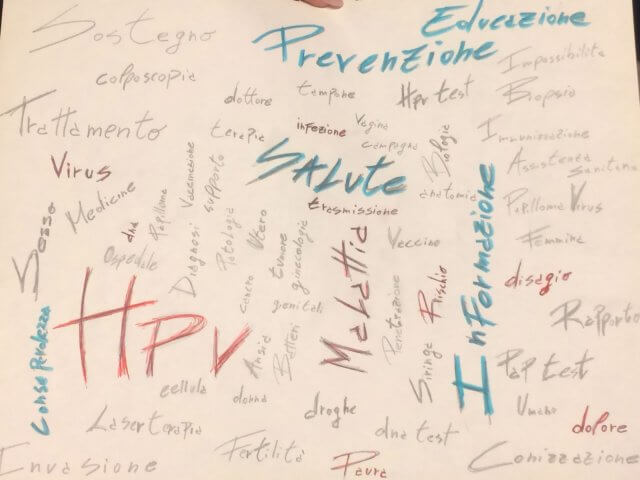 Sostegno
Educazione
Prevenzione
Impossibilita
colposcopia
dottore
tampone
Hpv test
Biopsia
Trattamento
terapia
infezione
Vagina
campagna
Biologia
Immunizzazione
Virus
Vaccinazione
supporto
SALUte
anatomia
Assistenza
sanitaria
Sesso
Medicine
dna
Papilloma
trasmissione
Papilloma Virus
Ospedale
Diagnosi
Patologia
Utero
tumore
ginecologia
Malattia
Vaccino
Informazione
Femmina
Consapevolezza
HPV
cancro
genitali
Penetrazione
Rischio
disagio
Rapporto
Ansia
Batteri
Siringa
Pap test
cellula
donna
droghe
Umano
Laser terapia
dna test
dolore
Invasione
Fertilità
Paura
Conizzazione